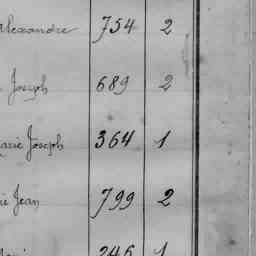 Alexandre 754 2
Joseph 689 2
Marie Joseph 364 1
Jean 799 2
246 1